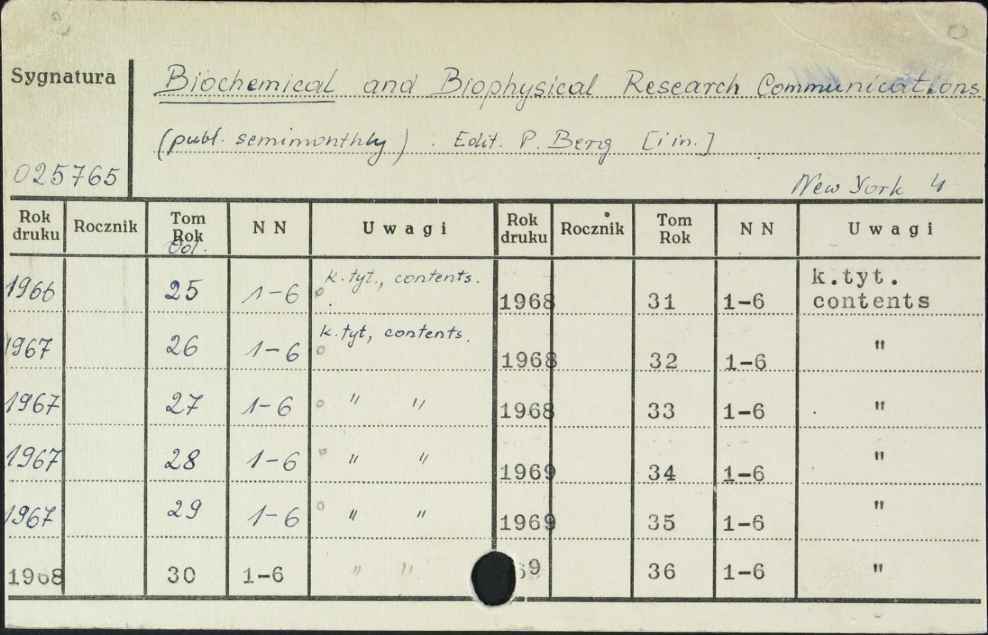 Sygnatura Biochemical and Biophysical Research Communications.
(publ. semimonthly). Edit. P. Berg [i in.]
025765 New York 4
Rok druku Rocznik Tom Rok Vol. N N Uwagi Rok druku Rocznik Tom Rok N N Uwagi
1966 25 1-6 k.tyt., contents. 1968 31 1-6 k.tyt. contents
1967 26 1-6 k.tyt, contents. 1968 32 1-6 "
1967 27 1-6 " " 1968 33 1-6 "
1967 28 1-6 " " 1969 34 1-6 "
1967 29 1-6 " " 1969 35 1-6 "
1968 30 1-6 " " 69 36 1-6 "